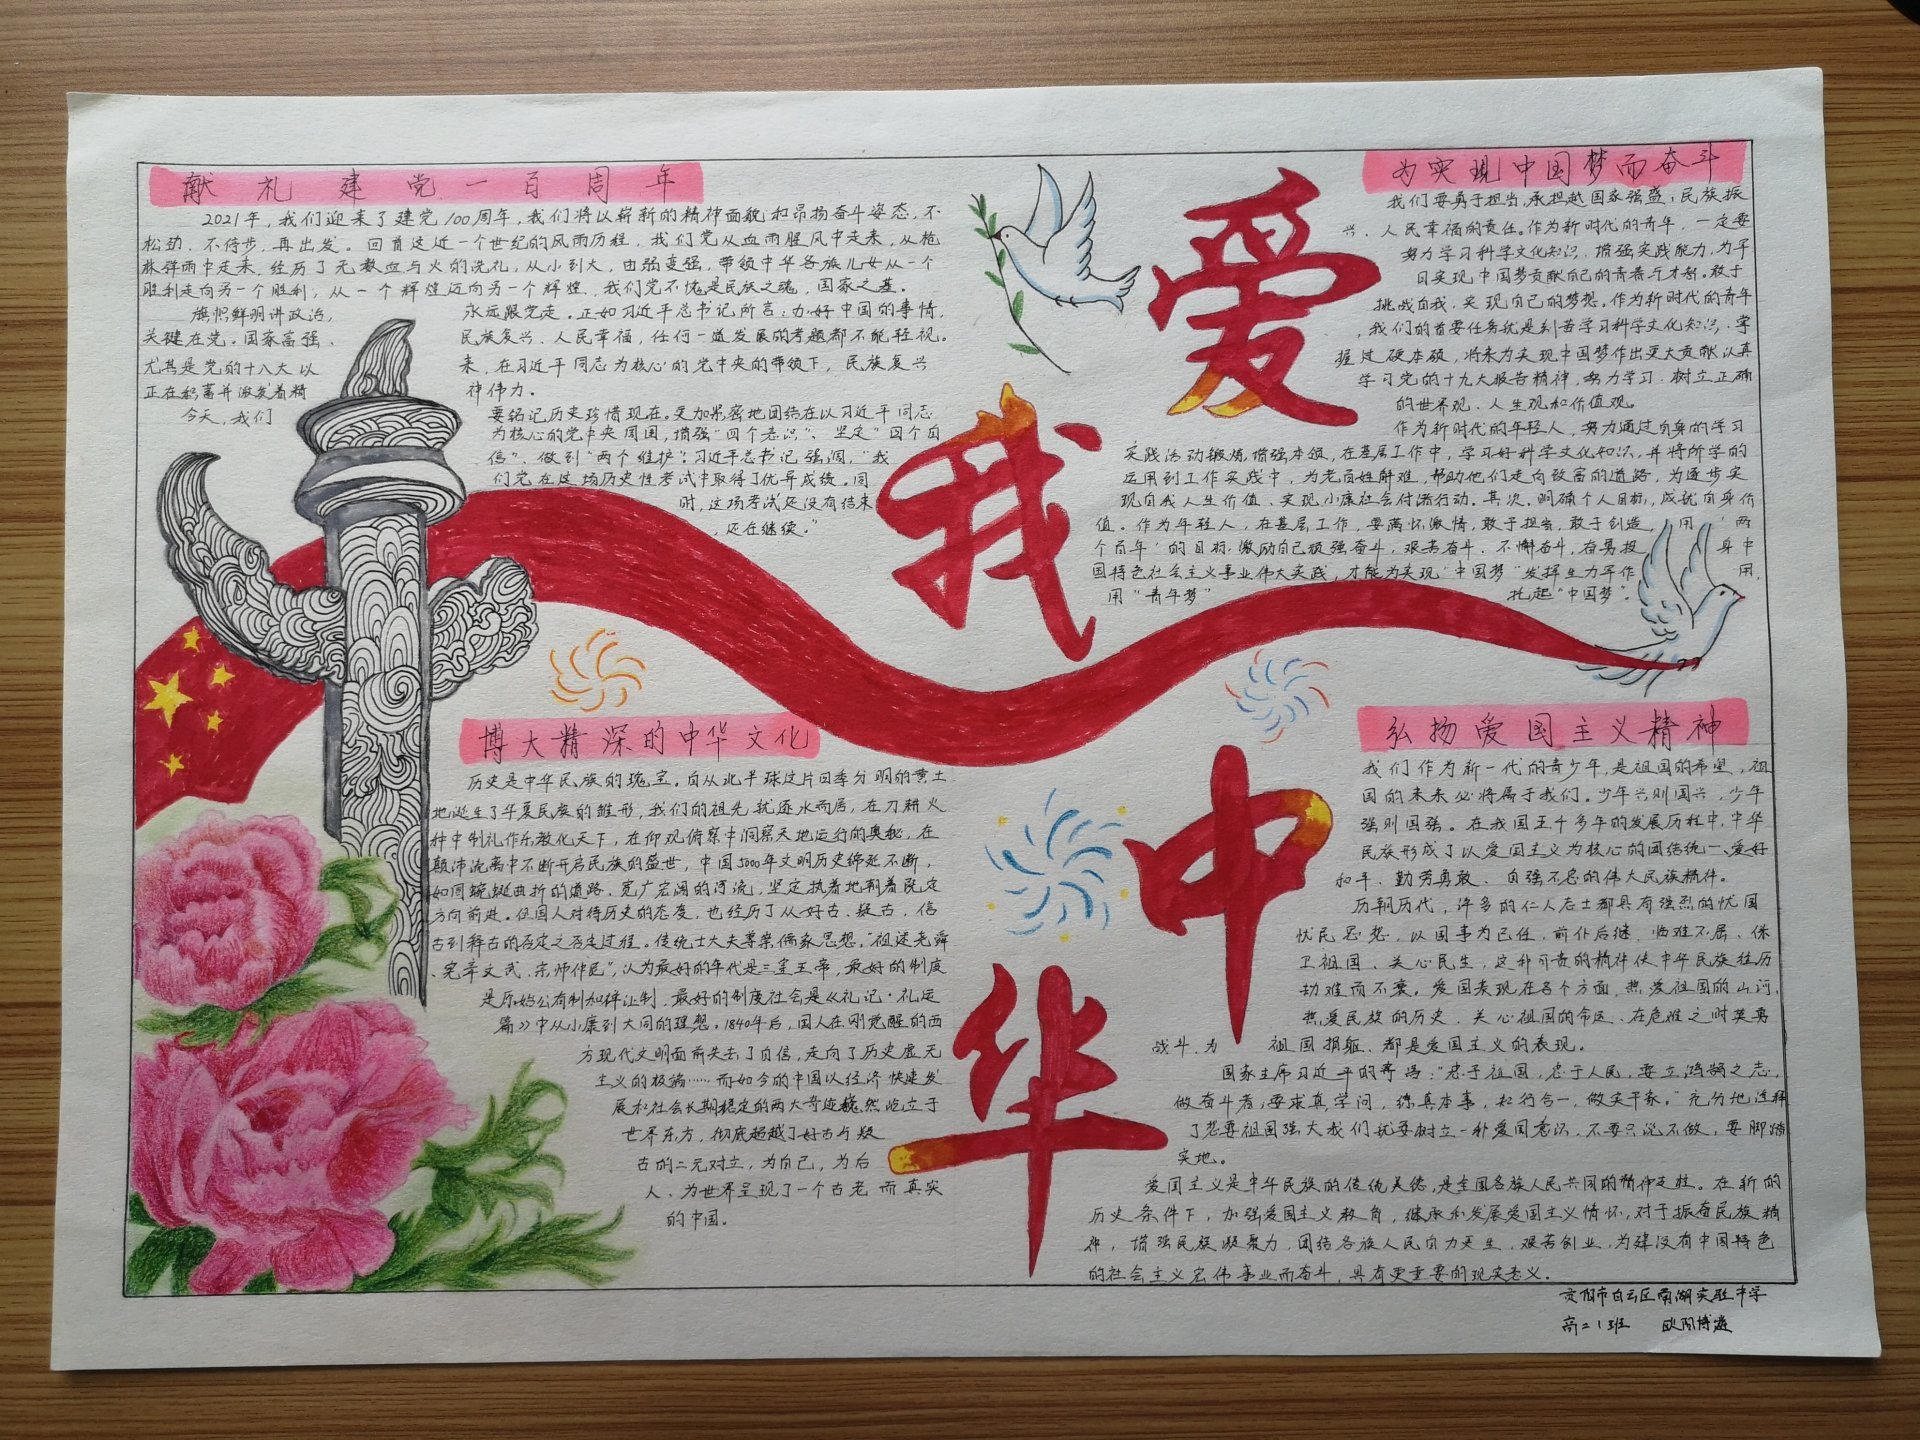 献礼建党一百周年
2021年,我们迎来了建党100周年,我们将以崭新的精神面貌和昂扬奋斗姿态,不
松劲、不停步、再出发。回首这近一个世纪的风雨历程,我们党从血雨腥风中走来,从枪
林弹雨中走来,经历了无数血与火的洗礼,从小到大,由弱变强,带领中华各族儿女从一个
胜利走向另一个胜利,从一个辉煌迈向另一个辉煌,我们党不愧是民族之魂,国家之基。
旗帜鲜明讲政治,永远跟党走。正如习近平总书记所言:办好中国的事情,
关键在党。国家富强、民族复兴、人民幸福,任何一道发展的考题都不能轻视。
尤其是党的十八大以来,在习近平同志为核心的党中央的带领下,民族复兴
正在积蓄并激发着精神伟力。
今天,我们要铭记历史珍惜现在。更加紧密地团结在以习近平同志
为核心的党中央周围,增强“四个意识”、坚定“四个自
信”、做到“两个维护”。习近平总书记强调,“我
们党在这场历史性考试中取得了优异成绩。同
时,这场考试还没有结束
,还在继续。”
爱我中华
为实现中国梦而奋斗
我们要勇于担当,承担起国家强盛;民族振
兴、人民幸福的责任。作为新时代的青年,一定要
努力学习科学文化知识,增强实践能力,为早
日实现中国梦贡献自己的青春与才智。敢于
挑战自我,实现自己的梦想。作为新时代的青年
,我们的首要任务就是刻苦学习科学文化知识,掌
握过硬本领,将来为实现中国梦作出更大贡献认真
学习党的十九大报告精神,努力学习,树立正确
的世界观、人生观和价值观。
作为新时代的年轻人,努力通过自身的学习
实践活动锻炼,增强本领,在基层工作中,学习好科学文化知识,并将所学的
运用到工作实践中,为老百姓解难,帮助他们走向致富的道路,为逐步实
现自我人生价值、实现小康社会付诸行动。其次,明确个人目标,成就自身价
值。作为年轻人,在基层工作,要满怀激情,敢于担当,敢于创造,用“两
个百年”的目标,激励自己顽强奋斗,艰苦奋斗、不懈奋斗,奋勇投身中
国特色社会主义事业伟大实践,才能为实现“中国梦”发挥生力军作用,
用“青年梦”托起“中国梦”。
博大精深的中华文化
历史是中华民族的瑰宝。自从北半球这片四季分明的黄土
地诞生了华夏民族的雏形,我们的祖先就逐水而居,在刀耕火
种中制礼作乐教化天下,在仰观俯察中洞察天地运行的奥秘,在
颠沛流离中不断开启民族的盛世,中国5000年文明历史绵延不断,
如同蜿蜒曲折的道路、宽广宏阔的河流,坚定执着地朝着既定
方向前进。但国人对待历史的态度,也经历了从好古、疑古,信
古到释古的否定之否定过程。传统士大夫尊崇儒家思想,“祖述尧舜
、宪章文武、宗师仲尼”,认为最好的年代是三皇五帝,最好的制度
是原始公有制和禅让制,最好的制度社会是《礼记·礼运
篇》中从小康到大同的理想。1840年后,国人在刚觉醒的西
方现代文明面前失去了自信,走向了历史虚无
主义的极端……而如今的中国以经济快速发
展和社会长期稳定的两大奇迹巍然屹立于
世界东方,彻底超越了好古与疑
古的二元对立,为自己,为后
人、为世界呈现了一个古老而真实
的中国。
弘扬爱国主义精神
我们作为新一代的青少年,是祖国的希望,祖
国的未来必将属于我们。少年兴则国兴,少年
强则国强。在我国五千多年的发展历程中,中华
民族形成了以爱国主义为核心的团结统一、爱好
和平、勤劳勇敢、自强不息的伟大民族精神。
历朝历代,许多的仁人志士都具有强烈的忧国
忧民思想,以国事为己任,前仆后继,临难不屈、保
卫祖国、关心民生,这种可贵的精神使中华民族经历
劫难而不衰。爱国表现在各个方面,热爱祖国的山河,
热爱民族的历史、关心祖国的命运、在危难之时英勇
战斗、为祖国捐躯、都是爱国主义的表现。
国家主席习近平的寄语:“忠于祖国,忠于人民,要立鸿鹄之志,
做奋斗者;要求真学问,练真本事,知行合一,做实干家。”充分地诠释
了若要祖国强大我们就要树立一种爱国意识,不要只说不做,要脚踏
实地。
爱国主义是中华民族的传统美德,是全国各族人民共同的精神支柱。在新的
历史条件下,加强爱国主义教育,继承和发展爱国主义情怀,对于振奋民族精
神,增强民族凝聚力,团结各族人民自力更生,艰苦创业,为建设有中国特色
的社会主义宏伟事业而奋斗,具有更重要的现实意义。
贵阳市白云区南湖实验中学
高二1班 欧阳博遊